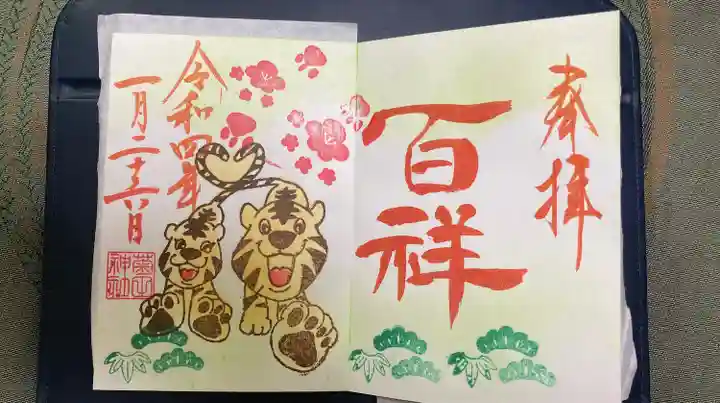 奉拝
百祥
令和四年
一月二十六日
神社